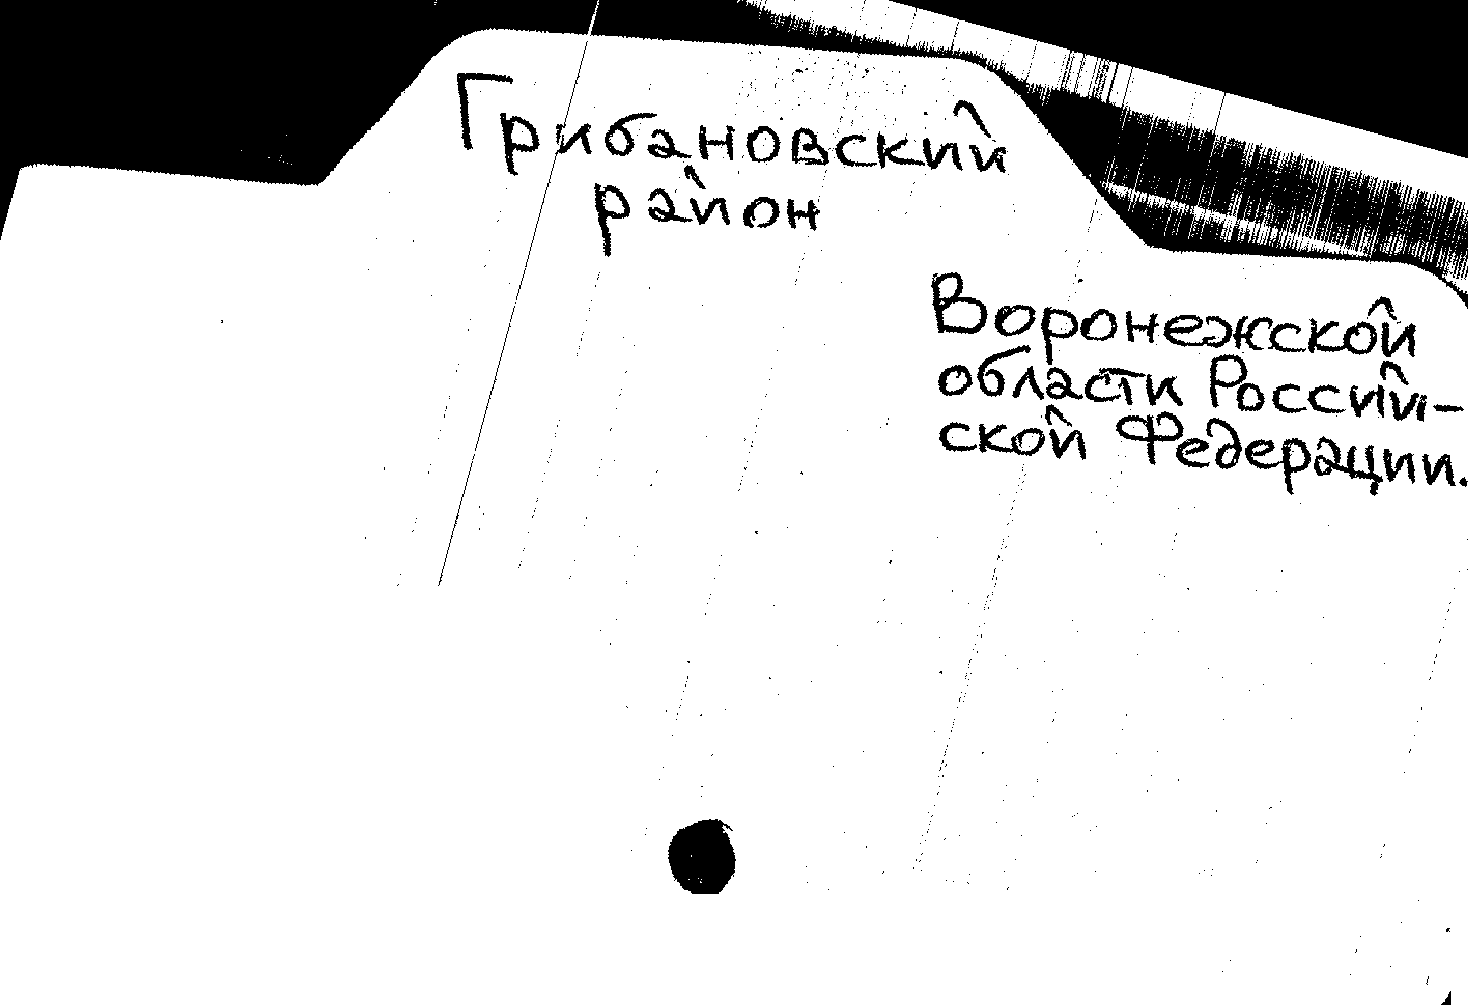 Грибановский
район
Воронежской
области Россий-
ской Федерации.